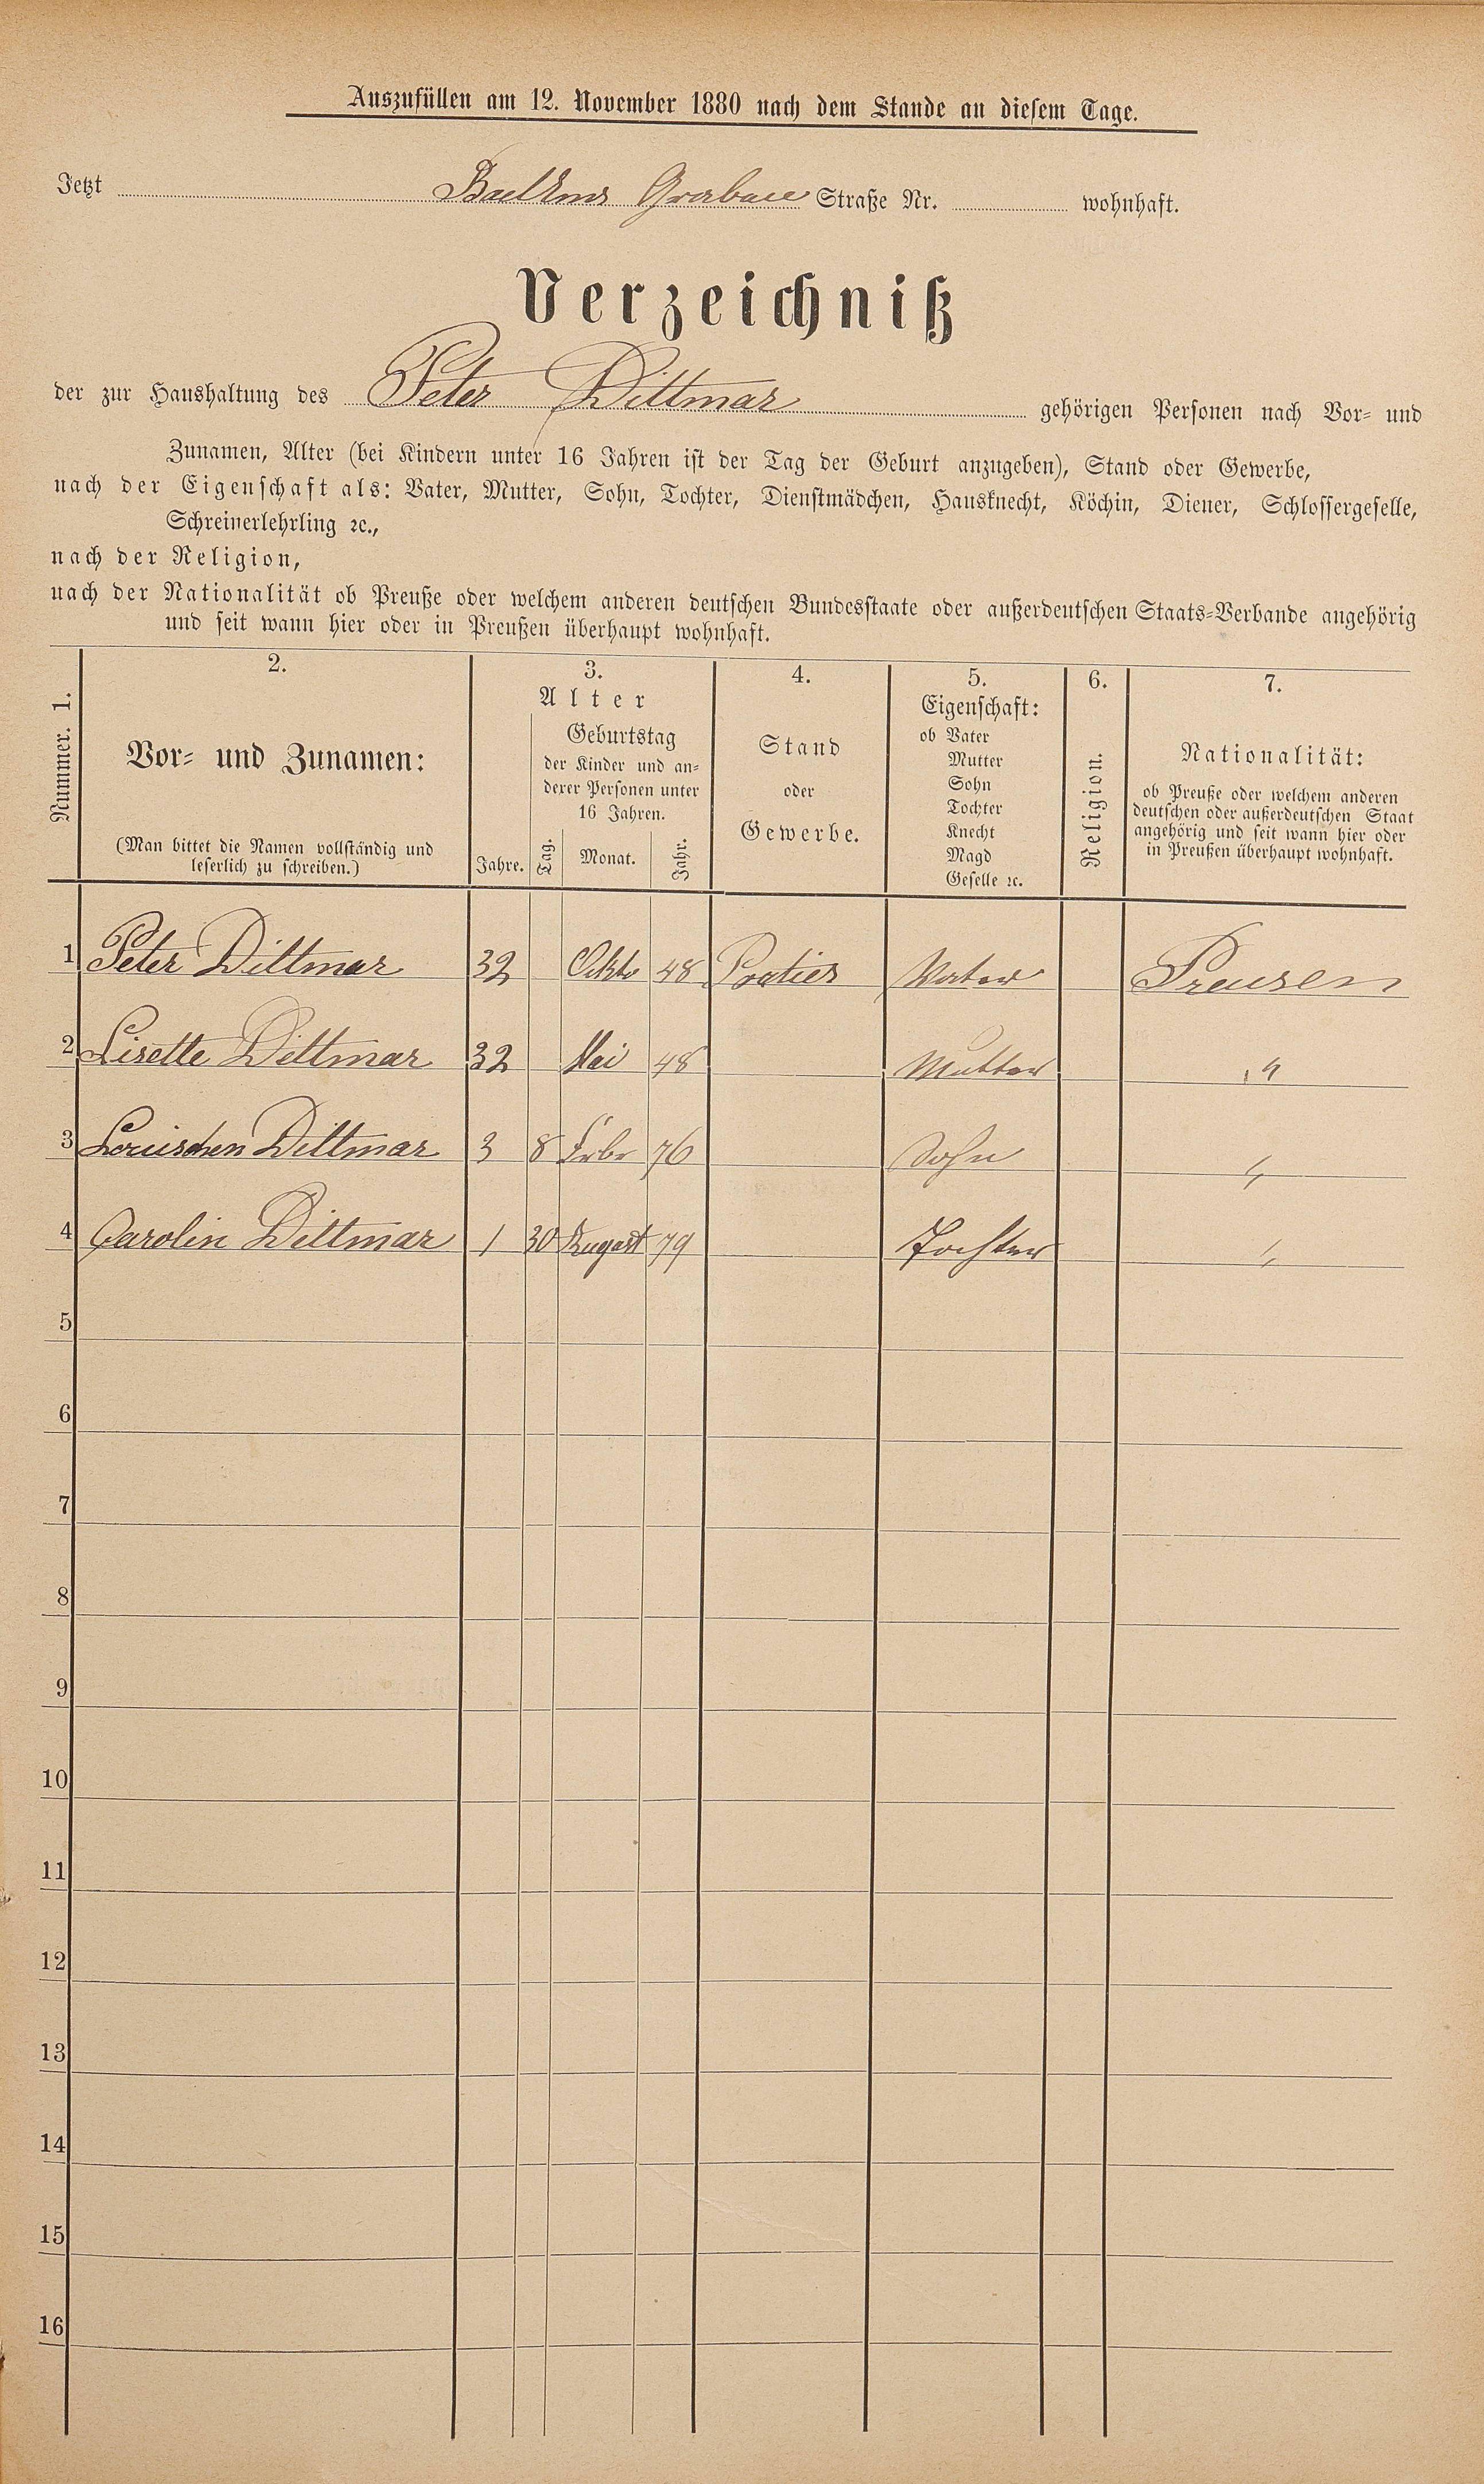 Auszufüllen am 12. November 1880 nach dem Stande an diesem Tage.
Jetzt Graben Straße Nr. wohnhaft.
Verzeichniß
der zur Haushaltung des Peter Dittmar gehörigen Personen nach Vor- und
Zunamen, Alter (bei Kindern unter 16 Jahren ist der Tag der Geburt anzugeben), Stand oder Gewerbe,
nach der Eigenschaft als: Vater, Mutter, Sohn, Tochter, Dienstmädchen, Hausknecht, Köchin, Diener, Schlossergeselle,
Schreinerlehrling ꝛc.,
nach der Religion,
nach der Nationalität ob Preuße oder welchem anderen deutschen Bundesstaate oder außerdeutschen Staats-Verbande angehörig
und seit wann hier oder in Preußen überhaupt wohnhaft.
Nummer. 1.
2.
Vor- und Zunamen:
(Man bittet die Namen vollständig und
leserlich zu schreiben.)
3.
Alter
Jahre.
Geburtstag
der Kinder und an-
derer Personen unter
16 Jahren.
Tag. Monat. Jahr.
4.
Stand
oder
Gewerbe.
5.
Eigenschaft:
ob Vater
Mutter
Sohn
Tochter
Knecht
Magd
Geselle ꝛc.
6.
Religion.
7.
Nationalität:
ob Preuße oder welchem anderen
deutschen oder außerdeutschen Staat
angehörig und seit wann hier oder
in Preußen überhaupt wohnhaft.
1 Peter Dittmar 32 Okto 48 Portier Vater Preusen
2 Lisette Dittmar 32 Mai 48 Mutter "
3 Louischen Dittmar 3 8 Febr 76 Sohn "
4 Carolin Dittmar 1 30 August 79 Tochter "
5
6
7
8
9
10
11
12
13
14
15
16